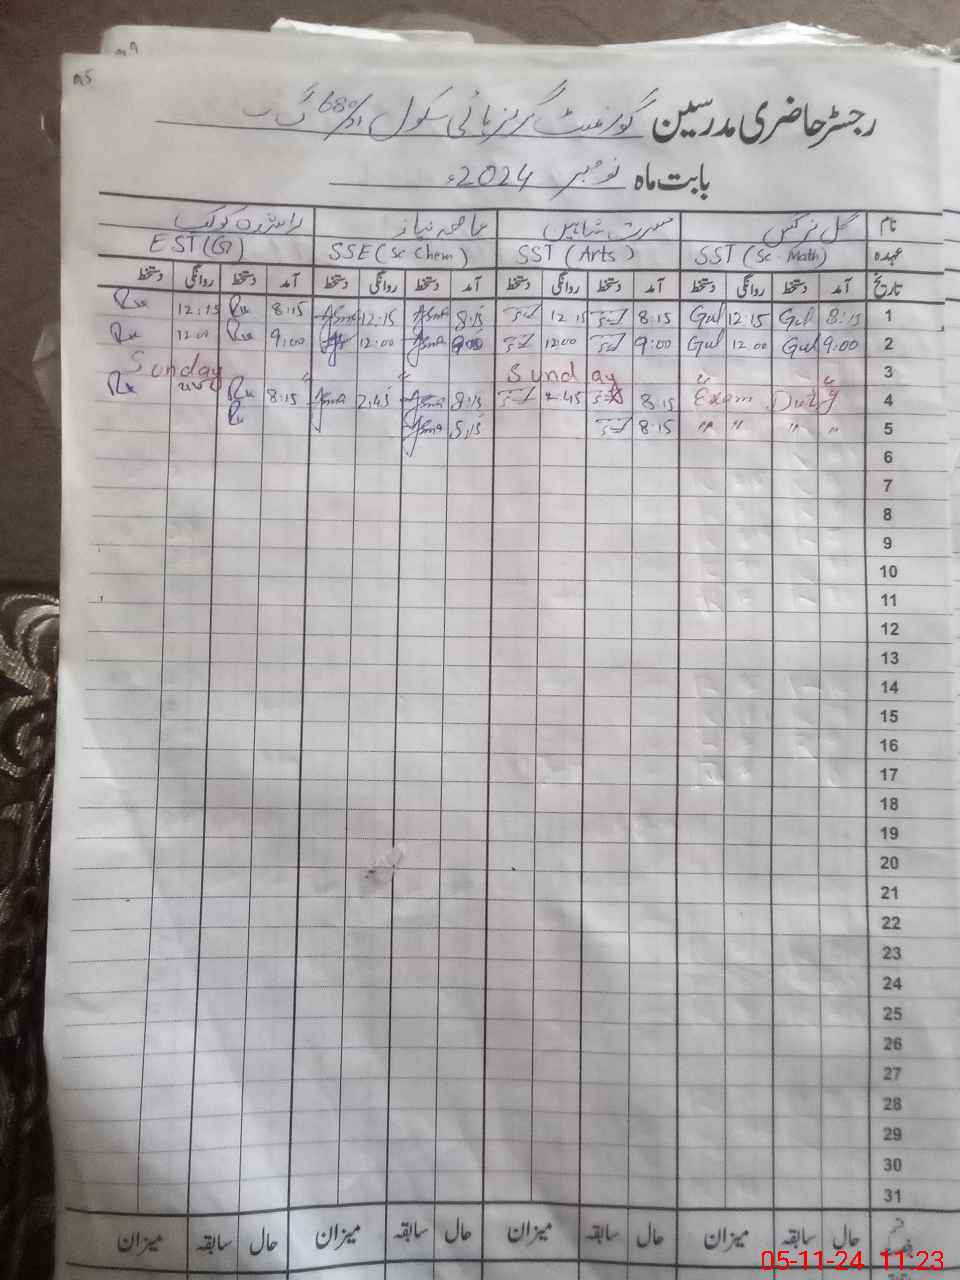 رجسٹر حاضری مدرسین گورنمنٹ گرلز ہائی سکول 68 گ ب
بابت ماہ نومبر 2024ء
نام گل نرگس مسرت شاہین عاصمہ نیاز کوکب
عہدہ SST (Sc-Math) SST (Arts) SSE (Sc Chem) EST
تاریخ آمد دستخط روانگی دستخط آمد دستخط روانگی دستخط آمد دستخط روانگی دستخط آمد دستخط روانگی دستخط
1 8:15 Gul 12:15 Gul 8:15 12:15 8:15 Asma 12:15 Asma 8:15 Ru 12:15 Ru
2 9:00 Gul 12:00 Gul 9:00 12:00 9:00 Asma 12:00 9:00 Ru 12:00 Ru
3 " " Sunday " " Sunday
4 Exam Duty 8:15 2:45 8:15 Asma 2:45 Asma 8:15 Ru Ru
5 " " " " 8:15 8:15 Asma Ru
6
7
8
9
10
11
12
13
14
15
16
17
18
19
20
21
22
23
24
25
26
27
28
29
30
31
حال سابقہ میزان حال سابقہ میزان حال سابقہ میزان حال سابقہ میزان
05-11-24 11:23